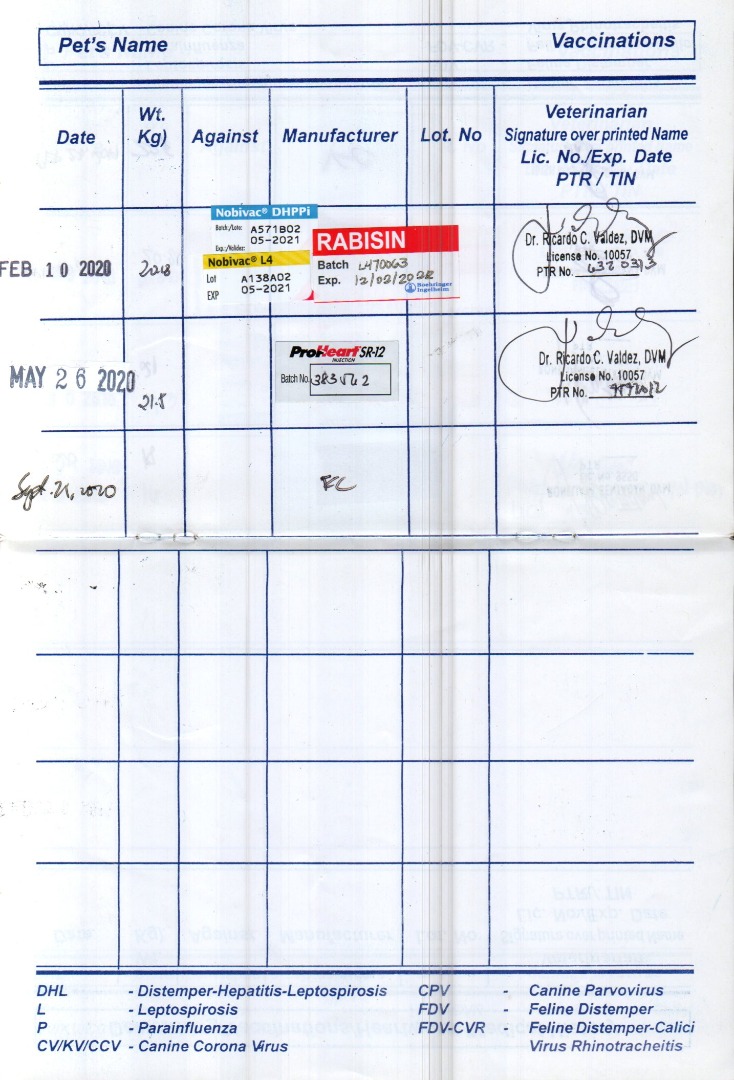 Pet's Name
Vaccinations
Date
Wt.
Kg)
Against
Manufacturer
Lot. No
Veterinarian
Signature over printed Name
Lic. No./Exp. Date
PTR / TIN
FEB 10 2020
Nobivac® DHPPi
Batch/Lote: A571B02
Exp./Validez: 05-2021
Nobivac® L4
Lot A138A02
EXP 05-2021
RABISIN
Batch L470063
Exp. 12/02/2022
Boehringer
Ingelheim
Dr. Ricardo C. Valdez, DVM
License No. 10057
PTR No. 6320313
MAY 26 2020
21.5
ProHeart SR-12
INJECTION
Batch No. 383542
Dr. Ricardo C. Valdez, DVM
License No. 10057
PTR No.
Sept. 21, 2020
DHL - Distemper-Hepatitis-Leptospirosis
L - Leptospirosis
P - Parainfluenza
CV/KV/CCV - Canine Corona Virus
CPV - Canine Parvovirus
FDV - Feline Distemper
FDV-CVR - Feline Distemper-Calici
Virus Rhinotracheitis